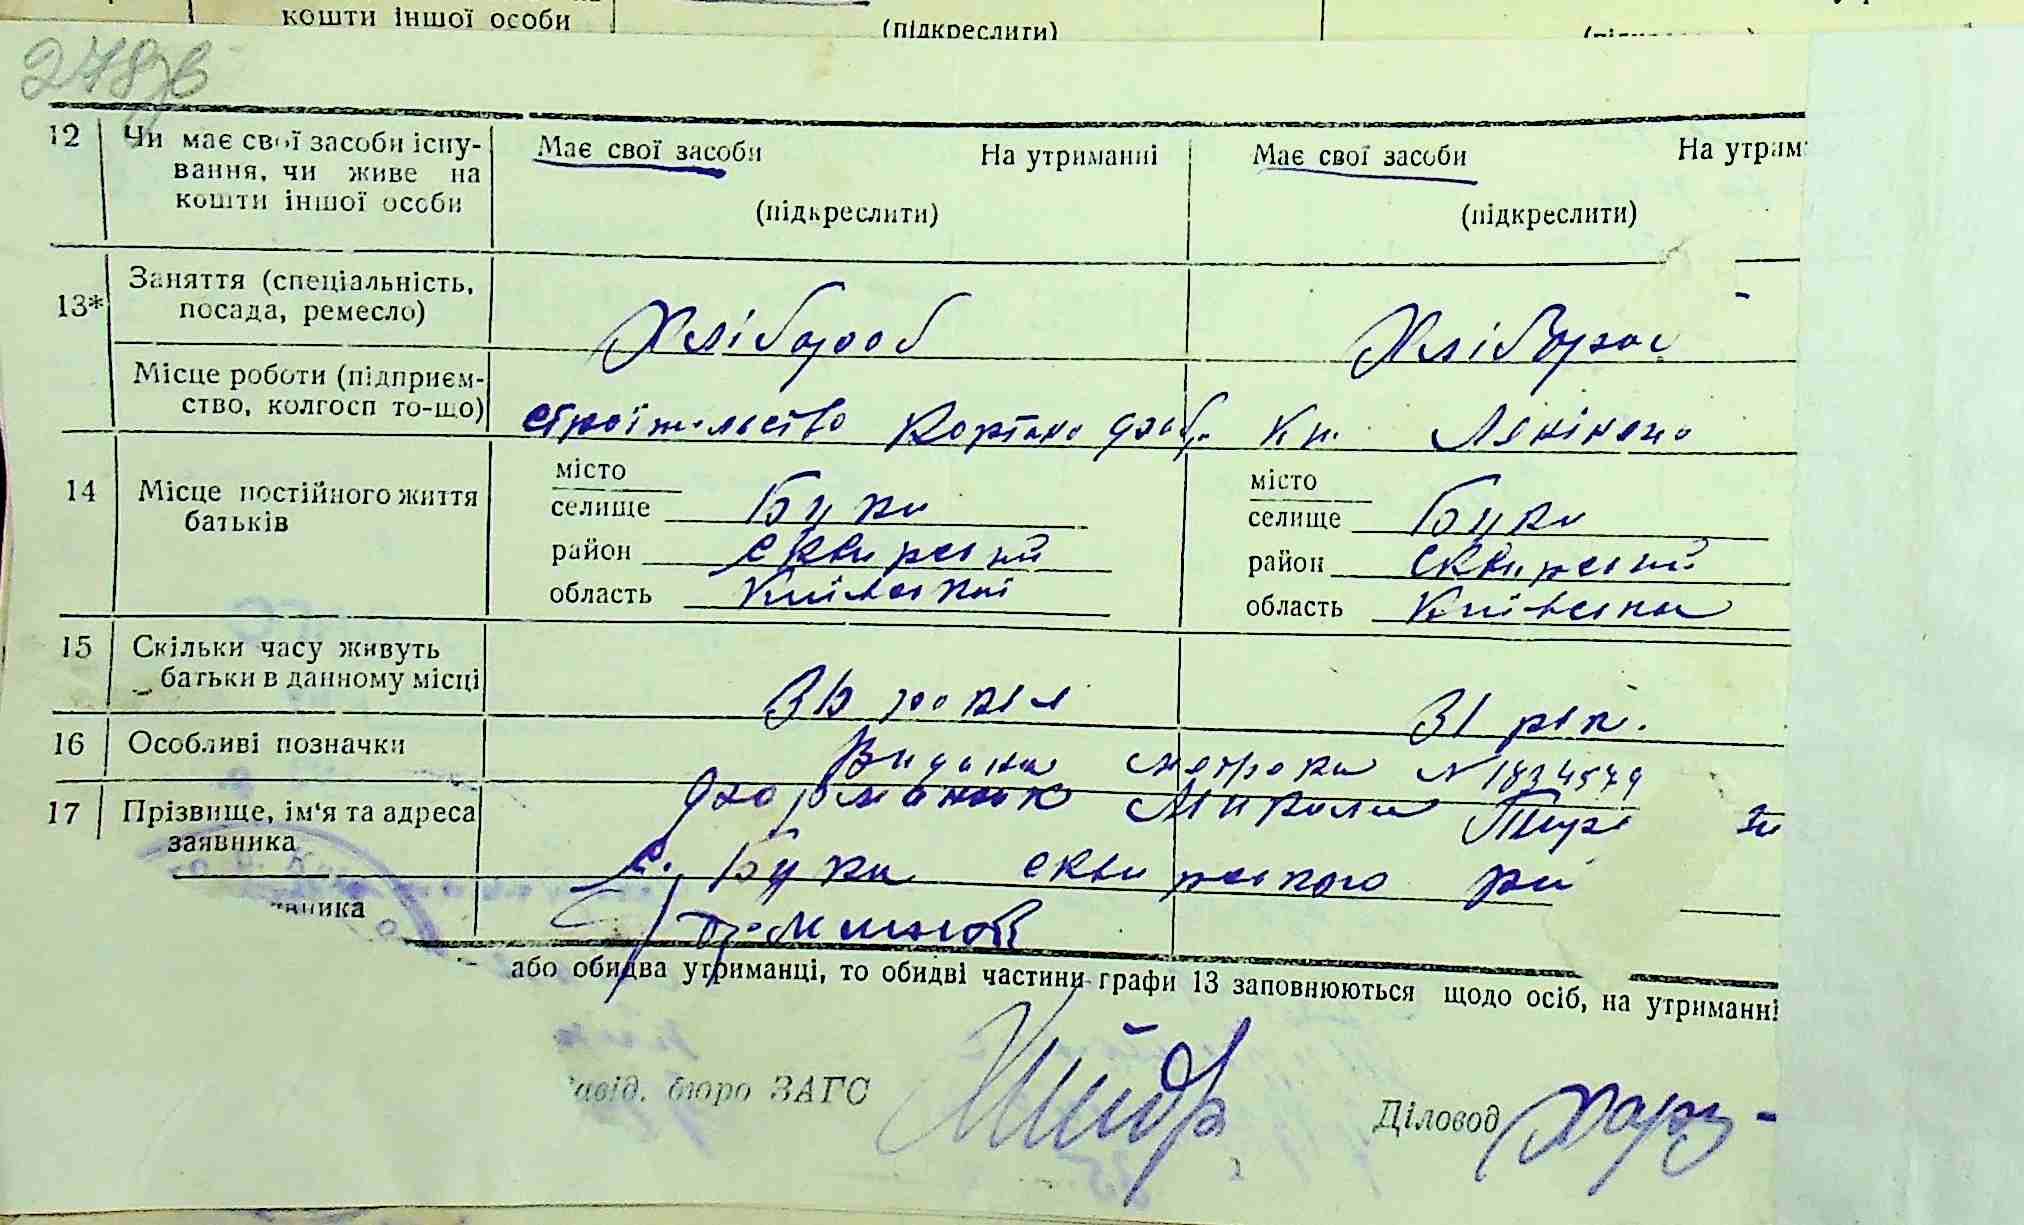 кошти іншої особи
(підкреслити)
278зв
12 Чи має свої засоби існу- Має свої засоби На утриманні Має свої засоби На утрим
вання, чи живе на
кошти іншої особи (підкреслити) (підкреслити)
Заняття (спеціальність,
13* посада, ремесло) Хлібороб Хлібороб
Місце роботи (підприєм-
ство, колгосп то-що) строітельство
14 Місце постійного життя батьків
місто місто
селище Буки селище Буки
район Сквирський район Сквирський
область Київської область Київська
15 Скільки часу живуть
батьки в данному місці 36 років 31 рік.
16 Особливі позначки Видана метрика № 1834579
17 Прізвище, ім'я та адреса Микола
заявника с. Буки Сквирського
вника
або обидва утриманці, то обидві частини графи 13 заповнюються щодо осіб, на утриманні
авід. бюро ЗАГС
Діловод